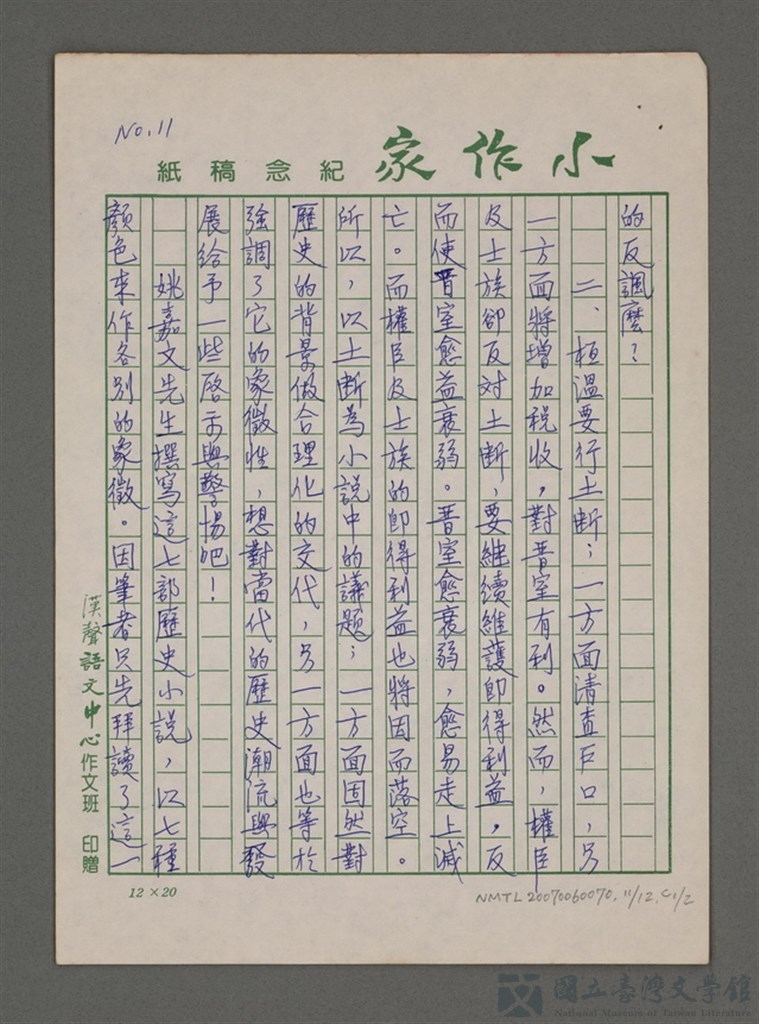 No.11
小作家
紀念稿紙
的反諷麼？
二、桓溫要行土断；一方面清查戶口，另
一方面將增加税收，對晋室有利。然而，權臣
及士族卻反對土断，要継續維護即得利益，反
而使晋室愈益衰弱。晋室愈衰弱，愈易走上滅
亡。而權臣及士族的即得利益也將因而落空。
所以，以土断為小説中的議題；一方面固然對
歷史的背景做合理化的交代，另一方面也等於
強調了它的象徵性，想對當代的歷史潮流與發
展給予一些啓示與警惕吧！
姚嘉文先生撰寫這七部歷史小説，以七種
顏色來作各別的象徵。因筆者只先拜讀了這一
漢聲語文中心作文班 印贈
12×20
NMTL20070060070.11/12.C1/2
國立臺灣文學館
National Museum of Taiwan Literature